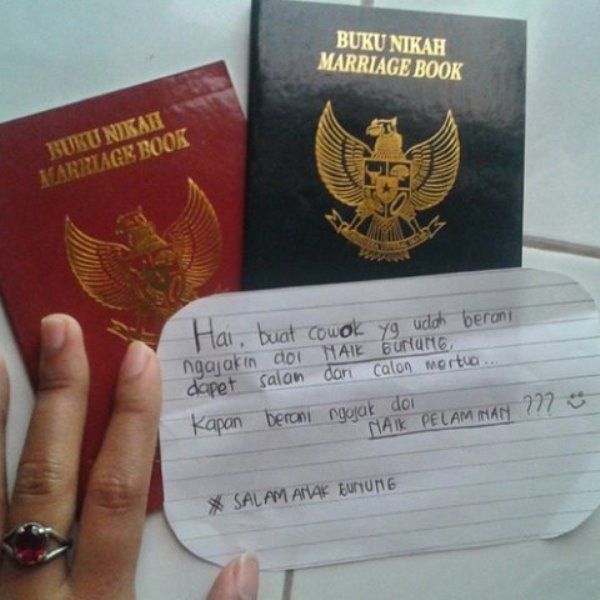 BUKU NIKAH
MARRIAGE BOOK
BUKU NIKAH
MARRIAGE BOOK
Hai, buat cowok yg udah berani
ngajakin doi NAIK GUNUNG,
dapet salam dari calon mertua...
Kapan berani ngajak doi
NAIK PELAMINAN ???
* SALAM ANAK GUNUNG